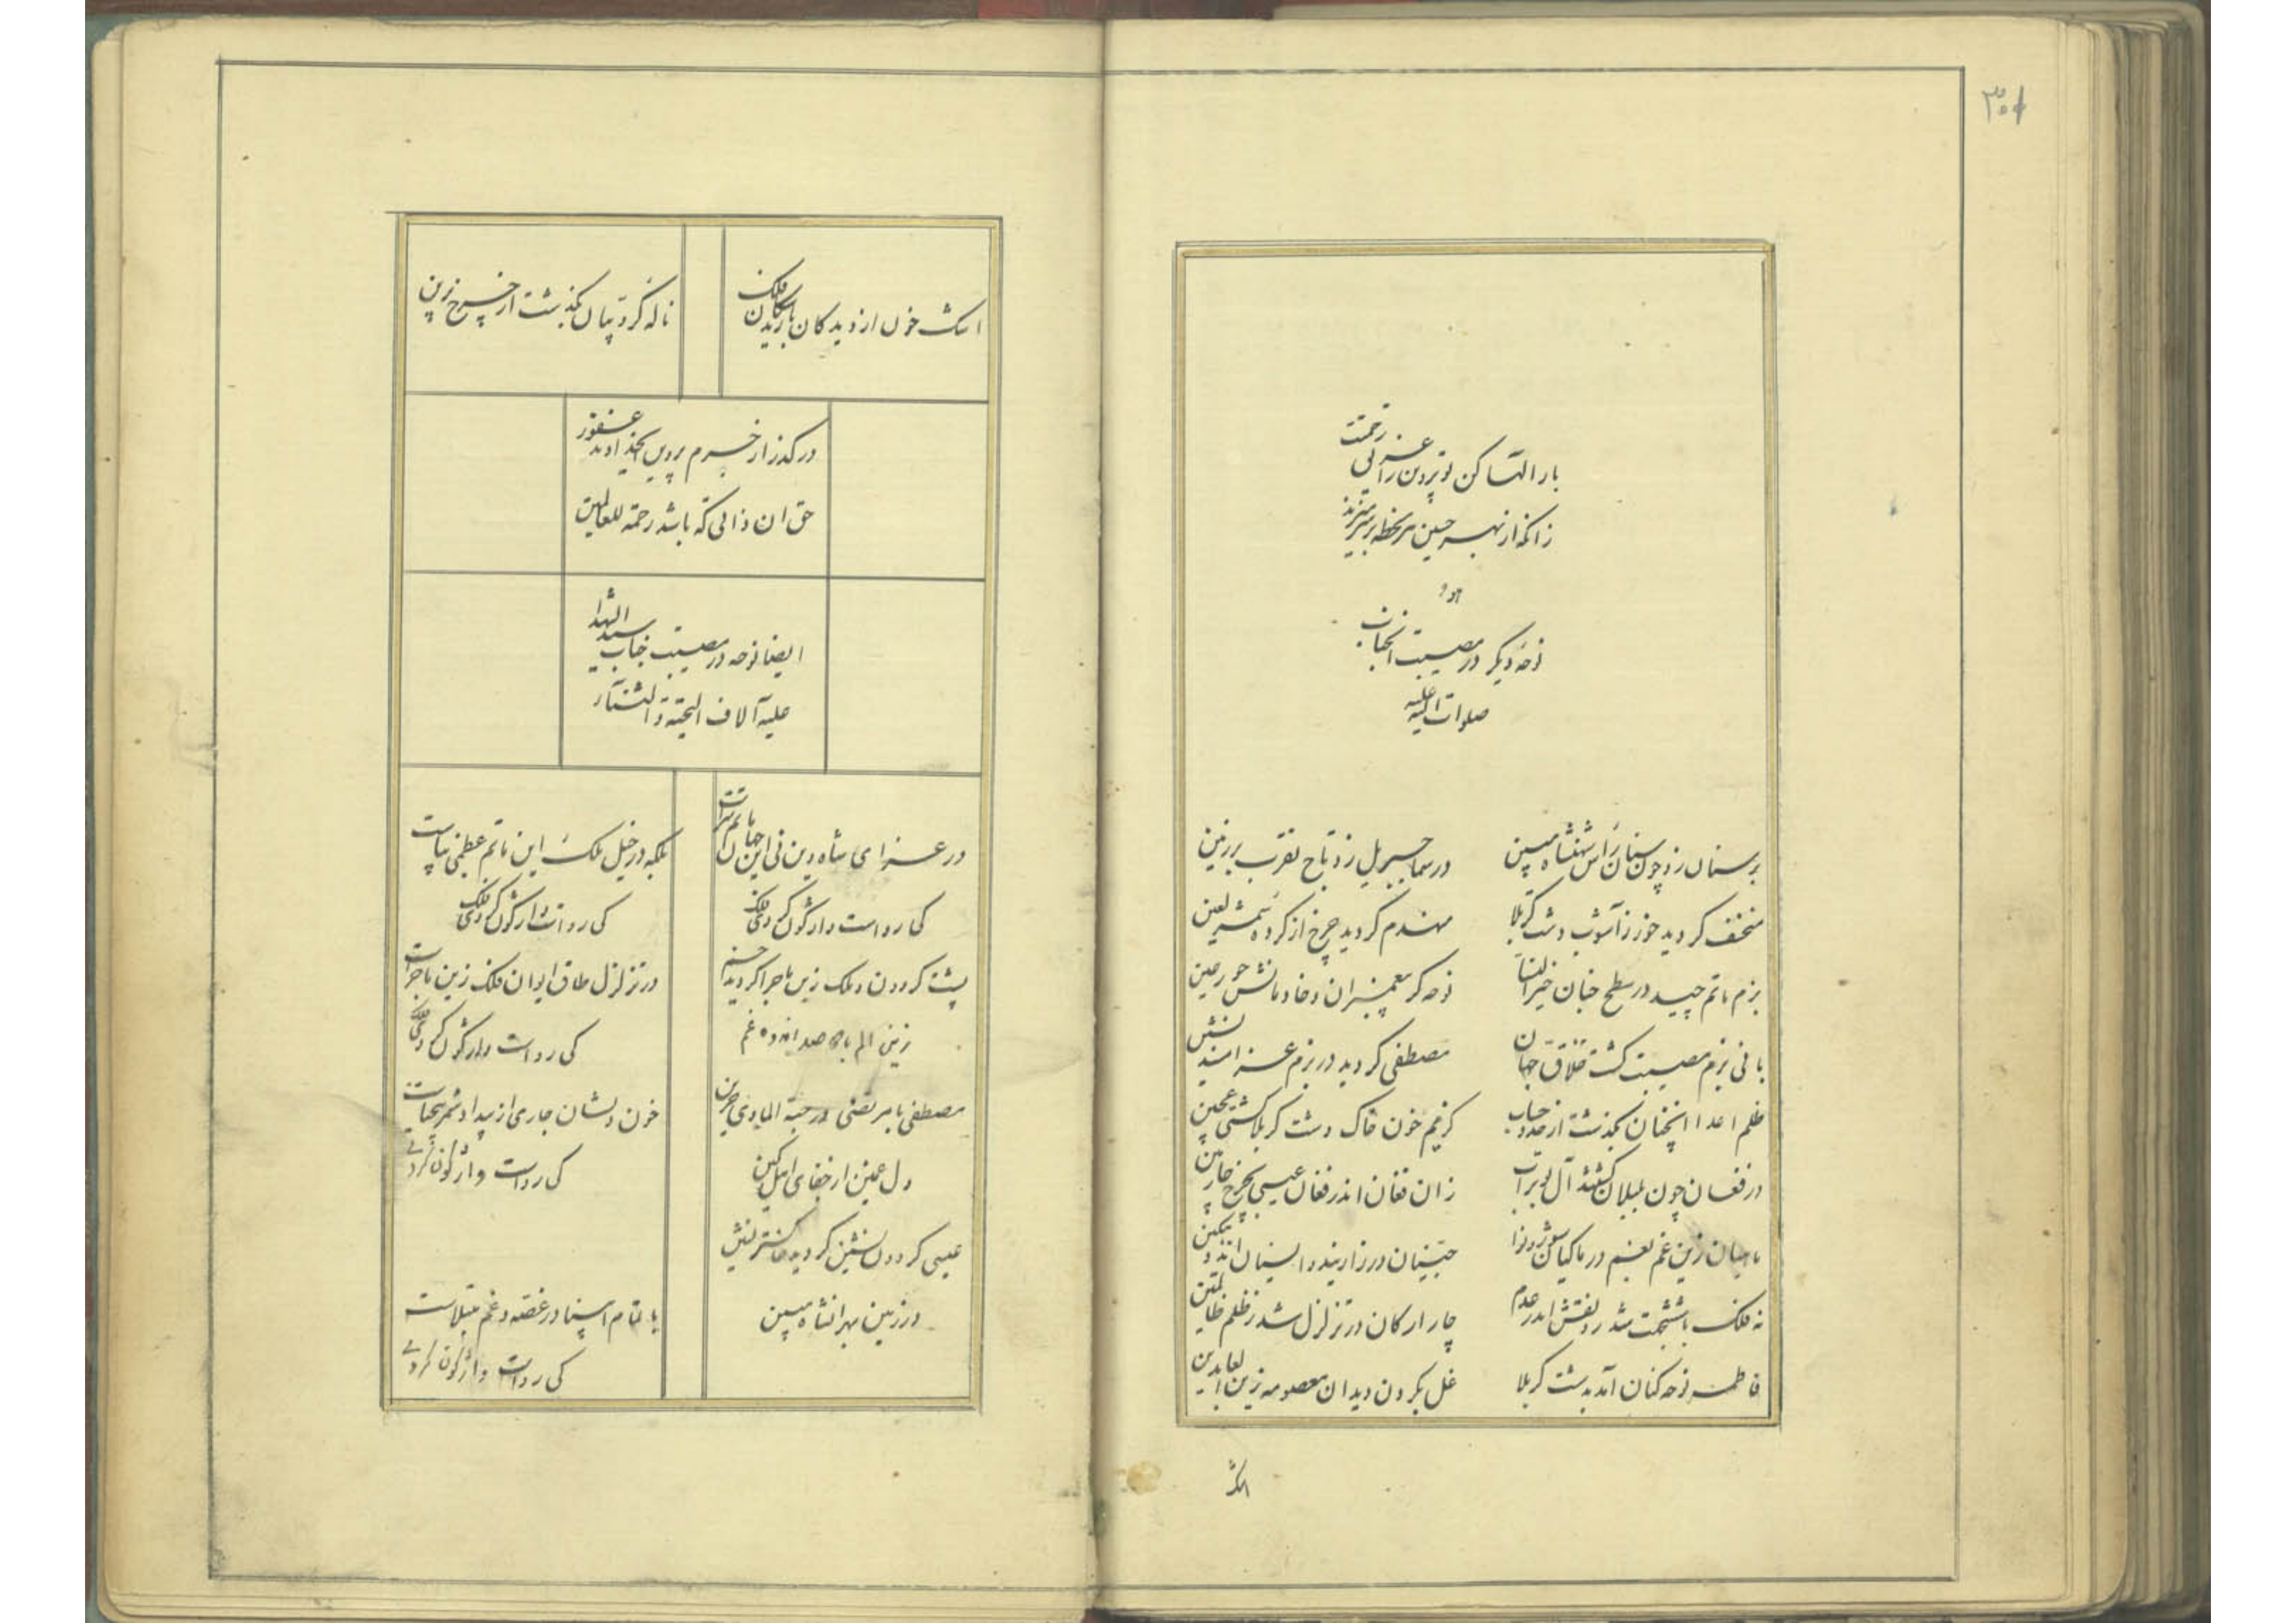 ۳۰۱
بار الها کن تو پروین را غریق رحمتت
زانکه از بهر حسین هر لحظه بر سر میزند
نوحه دیگر در مصیبت انجناب
صلوات الله علیه
بر سنان زد چون سنان رأس شهنشاه مبین
در سما جبریل زد تاج تقرب بر زمین
منخسف گردید خور ز آشوب دشت کربلا
منهدم گردید چرخ از کرده شمر لعین
بزم ماتم چید در سطح جنان خیر النسا
نوحه گر پیغمبران و خادمانش حور عین
بانی بزم مصیبت گشت خلاق جهان
مصطفی گردید در بزم عزا مسند نشین
ظلم اعدا انچنان بگذشت از حد و حساب
کز غم خون خاک دشت کربلا گشتی عجین
در فغان چون بلبلان گشتند آل بوتراب
زان فغان اندر فغان عیسی بچرخ چارمین
ماهیان زین غم بغم در ماکیان سوز و نوا
جنیان در زار بنده انسیان اندوهگین
نه فلک با ششجهت شد رو نقش اندر عدم
چار ارکان در تزلزل شد ز ظلم ظالمین
فاطمه نوحه کنان آمد بدشت کربلا
غل بگردن دید ان معصومه زین العابدین
اشک
اشک خون از دیدگان بارید سکان فلک
ناله کروبیان بگذشت از چرخ زرین
درگذر از جرم پروین ای خداوند غفور
حق ان ذاتی که باشد رحمة للعالمین
ایضا نوحه در مصیبت جناب سید الشهدا
علیه آلاف التحیة و الثناء
در عزای شاه دین نی این جهان ماتم سراست
بلکه در خیل ملک این ماتم عظمی بپاست
کی رواست واژگون گردی فلک
کی رواست واژگون گردی فلک
پشت گردون و ملک زین ماجرا گردید خم
در تزلزل طاق ایوان فلک زین ماجراست
زین الم با صد اندوه غم
کی رواست واژگون گردی فلک
مصطفی با مرتضی در جنة الماوی حزین
خون دلشان جاری از بیداد شمر بیحیاست
دل غمین از جفای اهل کین
کی رواست واژگون گردی
عیسی گردون نشین گردید خاکستر نشین
در زمین بهر انشاه مبین
با تمام انبیا در غصه و غم مبتلاست
کی رواست واژگون گردی